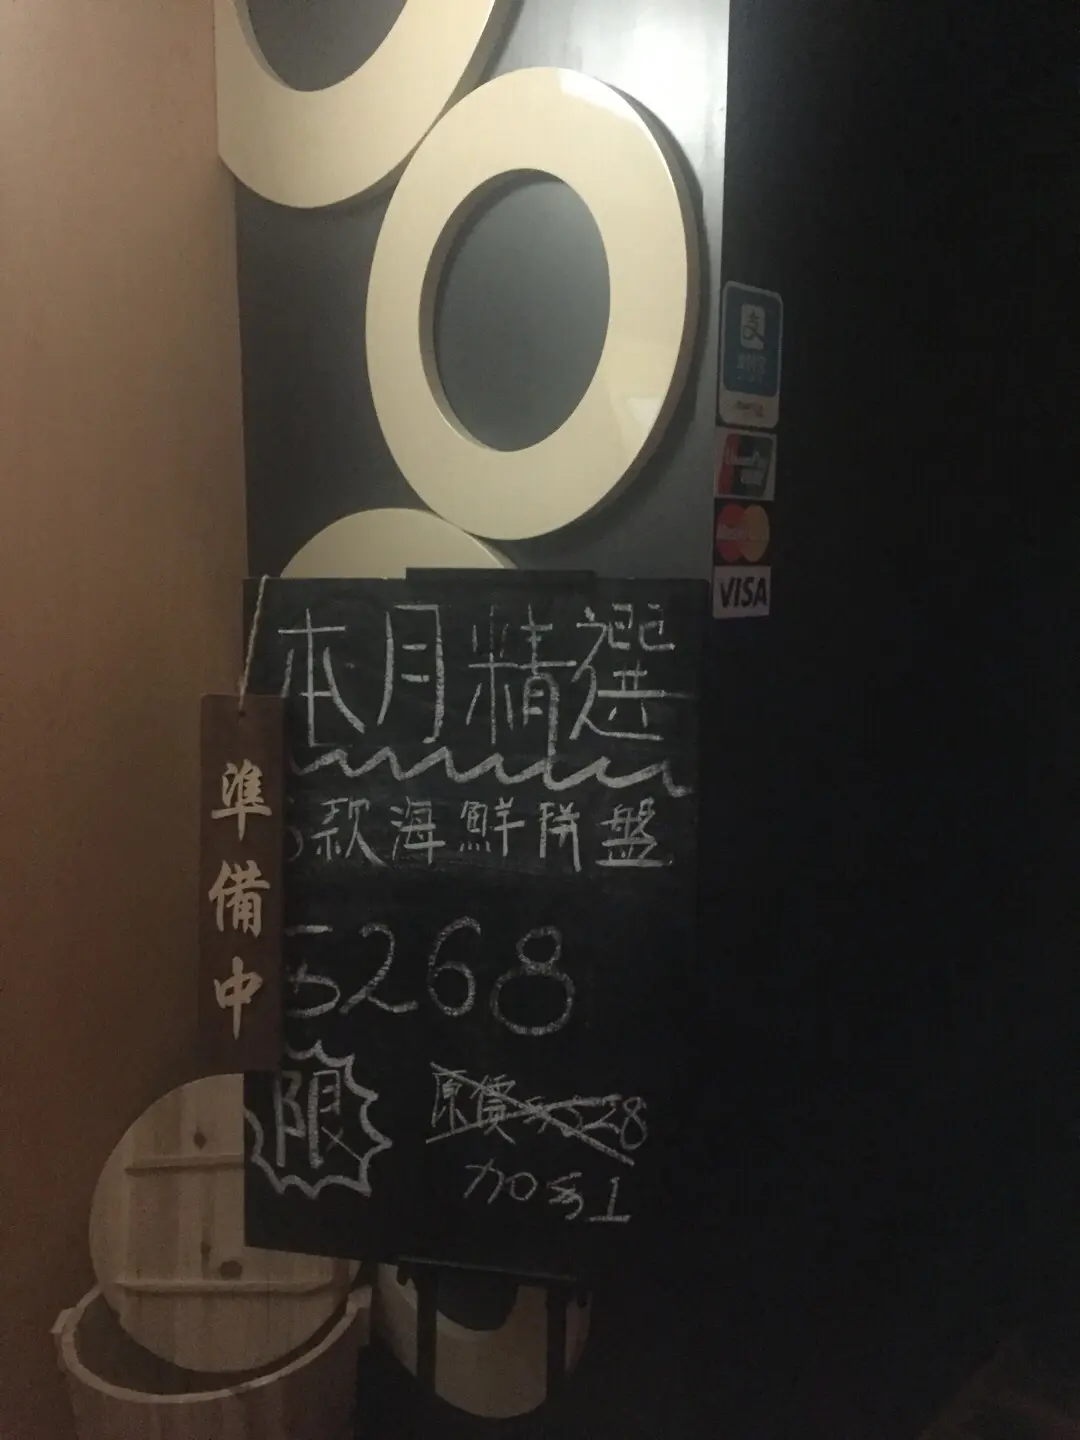 支
UnionPay
VISA
本月精選
款海鮮拼盤
268
準備中
限
原價
加